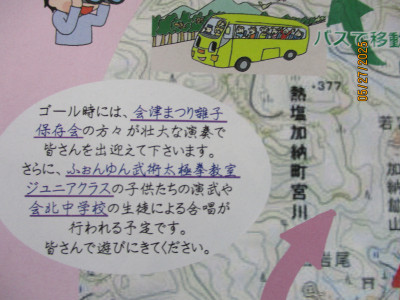 バスで移動
05/27/2025
・377
熱塩加納町宮川
若
加納鉱山
岩尾
ゴール時には、会津まつり囃子
保存会の方々が壮大な演奏で
皆さんを出迎えて下さいます。
さらに、ふぉんゆん武術太極拳教室
ジュニアクラスの子供たちの演武や
会北中学校の生徒による合唱が
行われる予定です。
皆さんで遊びにきてください。